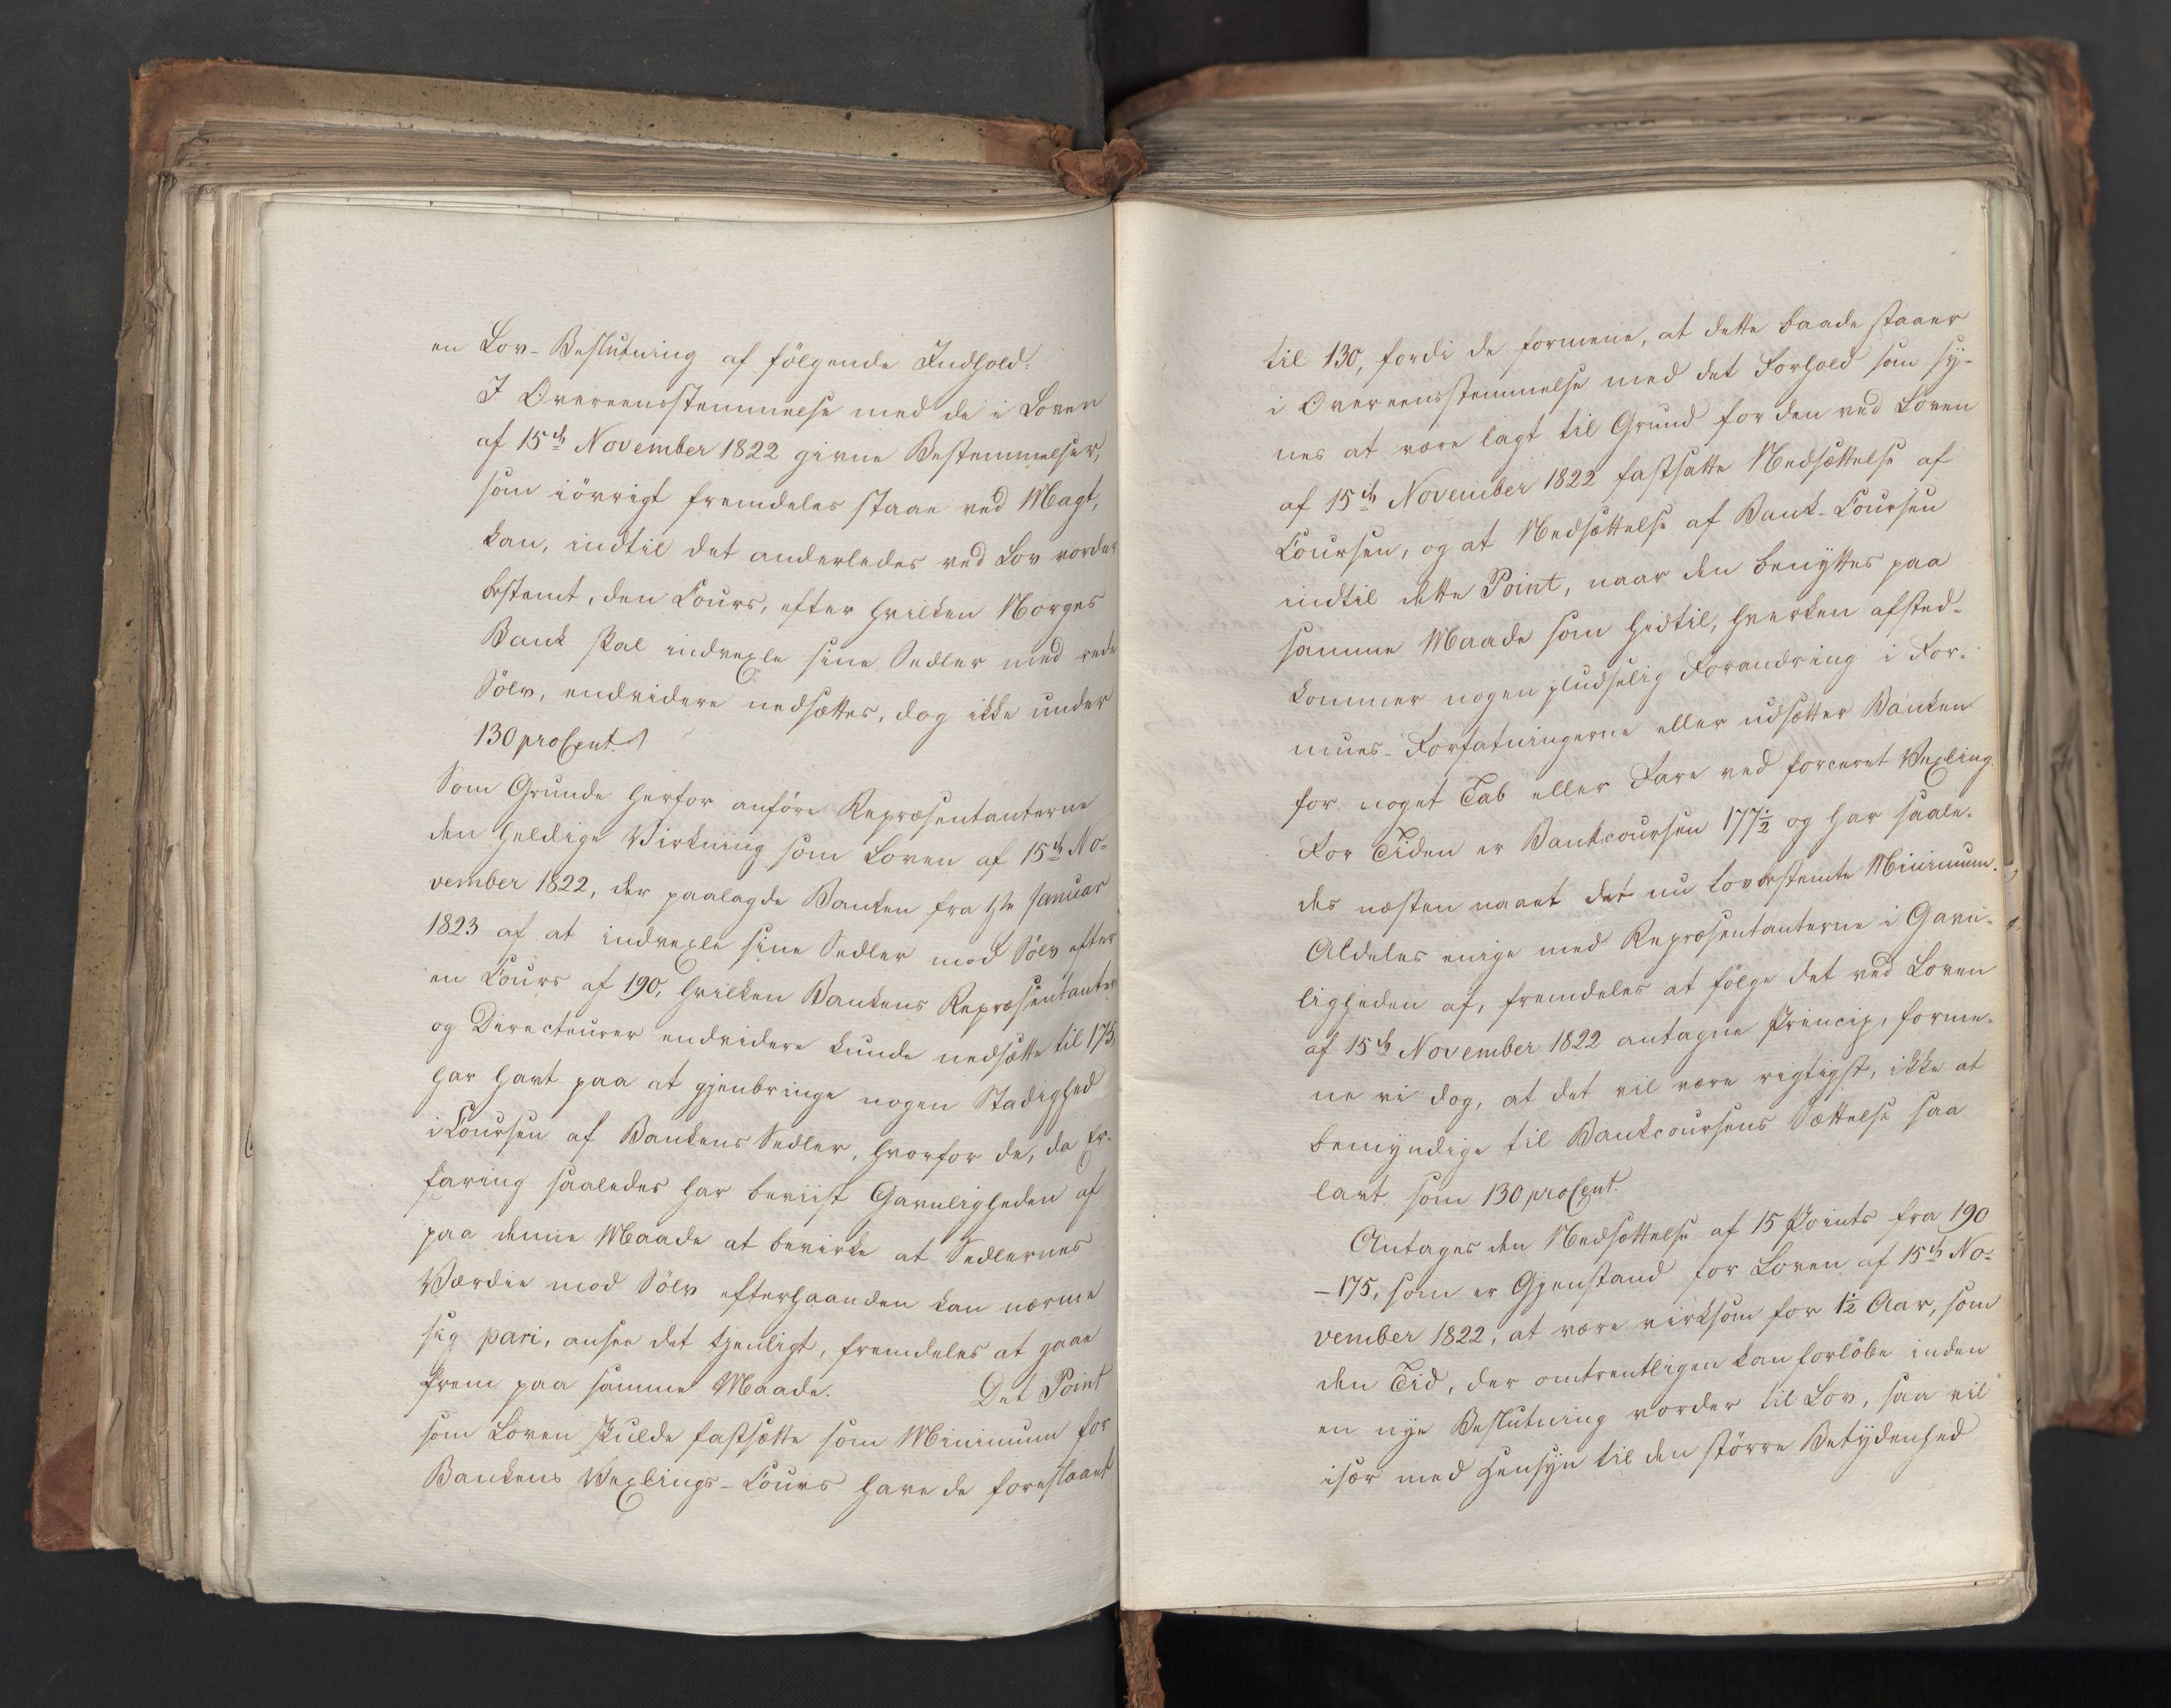 en Lov-Beslutning af følgende Indhold:
I Overeensstemmelse med de i Loven
af 15de November 1822 givne Bestemmelser,
som iøvrigt fremdeles staae ved Magt,
kan, indtil det anderledes ved Lov vorder
bestemt, den Cours, efter hvilken Norges
Bank skal indvexle sine Sedler med rede
Sølv, endvidere nedsættes, dog ikke under
130 proCent.
Som Grunde herfor anføre Repræsentanterne
den heldige Virkning som Loven af 15de No-
vember 1822, der paalagde Banken fra 1ste Januar
1823 af at indvexle sine Sedler mod Sølv efter
en Cours af 190, hvilken Bankens Repræsentanter
og Directeurer endvidere kunde nedsætte til 175,
har havt paa at gjenbringe nogen Stadighed
i Coursen af Bankens Sedler, hvorfor de, da Er-
faring saaledes har beviist Gavnligheden af
paa denne Maade at bevirke at Sedlernes
Værdie mod Sølv efterhaanden kan nærme
sig pari, ansee det tjenligt, fremdeles at gaae
frem paa samme Maade. Det Point
som Loven skulde fastsætte som Minimum for
Bankens Vexlings-Cours have de foreslaaet
til 130, fordi de formene, at dette baade staaer
i Overeensstemmelse med det Forhold som sy-
nes at være lagt til Grund for den ved Loven
af 15de November 1822 fastsatte Nedsættelse af
Coursen, og at Nedsættelse af Bank-Coursen
indtil dette Point, naar den benyttes paa
samme Maade som hidtil, hverken afsted-
kommer nogen pludselig Forandring i For-
mues-Forfatningerne eller udsætter Banken
for noget Tab eller Fare ved forceret Vexling.
For Tiden er Bankcoursen 177½ og har saale-
des næsten naaet det nu lovbestemte Minimum.
Aldeles enige med Repræsentanterne i Gavn-
ligheden af, fremdeles at følge det ved Loven
af 15de November 1822 antagne Princip, forme-
ne vi dog, at det vil være rigtigst, ikke at
bemyndige til Bankcoursens Sættelse saa
lavt som 130 proCent.
Antages den Nedsættelse af 15 Points fra 190
-175, som er Gjenstand for Loven af 15de No-
vember 1822, at være virksom for 1½ Aar, som
den Tid, der omtrentligen kan forløbe inden
en nye Beslutning vorder til Lov, saa vil
især med Hensyn til den større Betydenhed